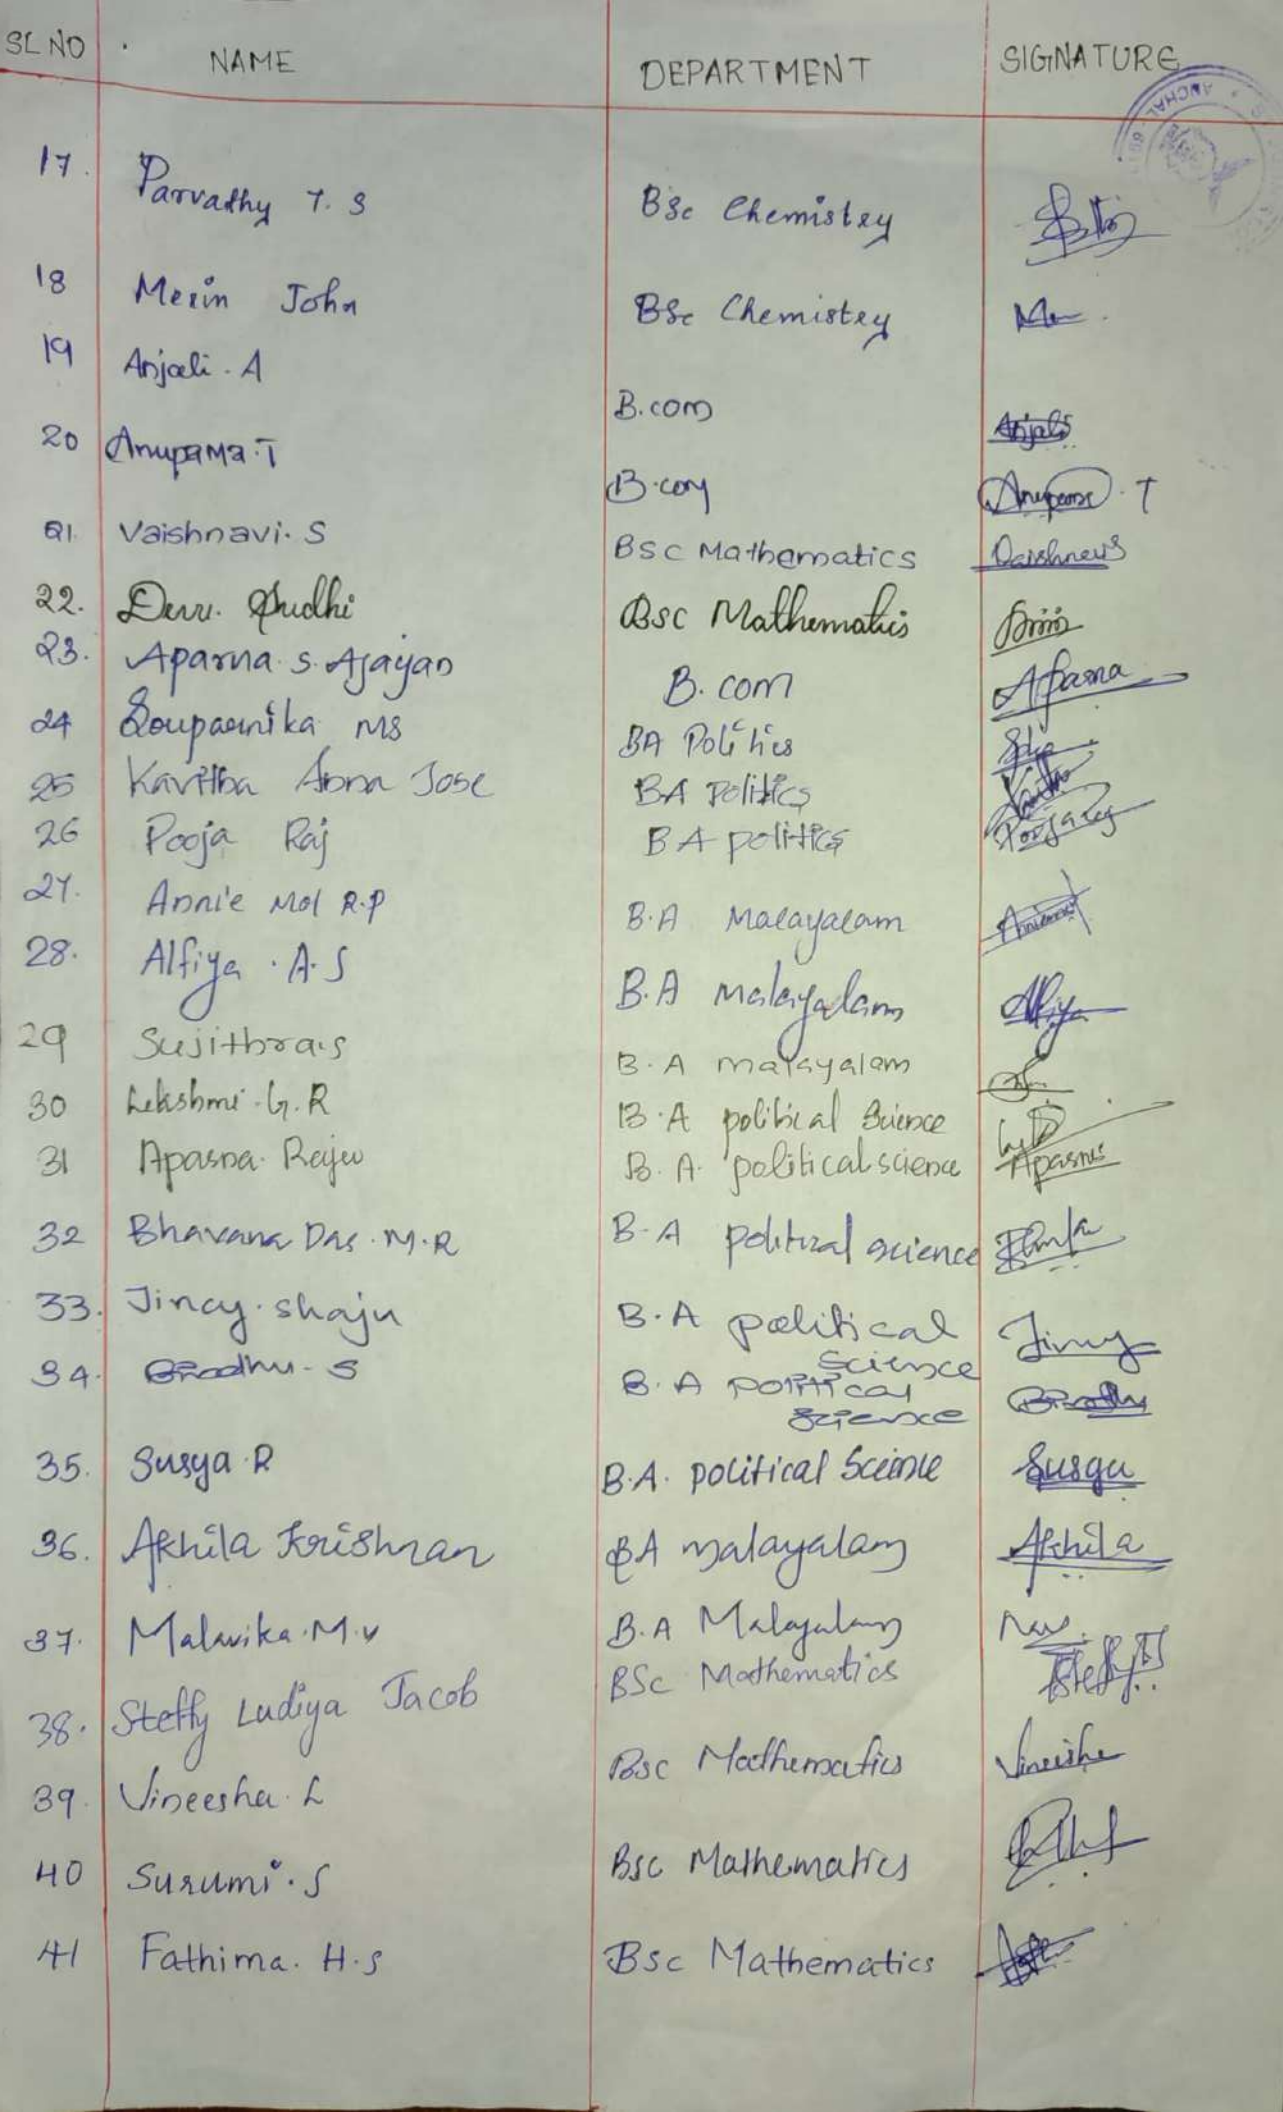 SL NO . NAME DEPARTMENT SIGNATURE
ANCHAL
17. Parvathy T. S BSc Chemistry
18 Merin John BSc Chemistry
19 Anjali . A B.com Anjali
20 Anupama.T B.com Anupama . T
21. Vaishnavi. S BSC Mathematics Vaishnavi
22. Bsc Mathematics
23. Aparna S. Ajayan B. com Aparna
24 Souparnika MS BA Politics
25 Kavitha Anna Jose BA Politics Kavitha
26 Pooja Raj BA politics Pooja Raj
27. Annie Mol R.P B.A Malayalam
28. Alfiya . A. S B.A malayalam Alfiya
29 Sujithra.S B. A malayalam
30 Lekshmi . G. R B. A political Science
31 Aparna Rajeev B. A. political science Aparna
32 Bhavana Das . M. R B. A political science
33. Jincy. Shaju B. A political Science Jincy
34. S B. A political Science
35. Surya R B.A. political Science Surya
36. Akhila Krishnan BA malayalam Akhila
37. Malavika. M. V B.A Malayalam
38. Steffy Ludiya Jacob BSc Mathematics Steffy
39. Vineesha. L Bsc Mathematics Vineesha
40 Surumi. S Bsc Mathematics
41 Fathima. H. S Bsc Mathematics